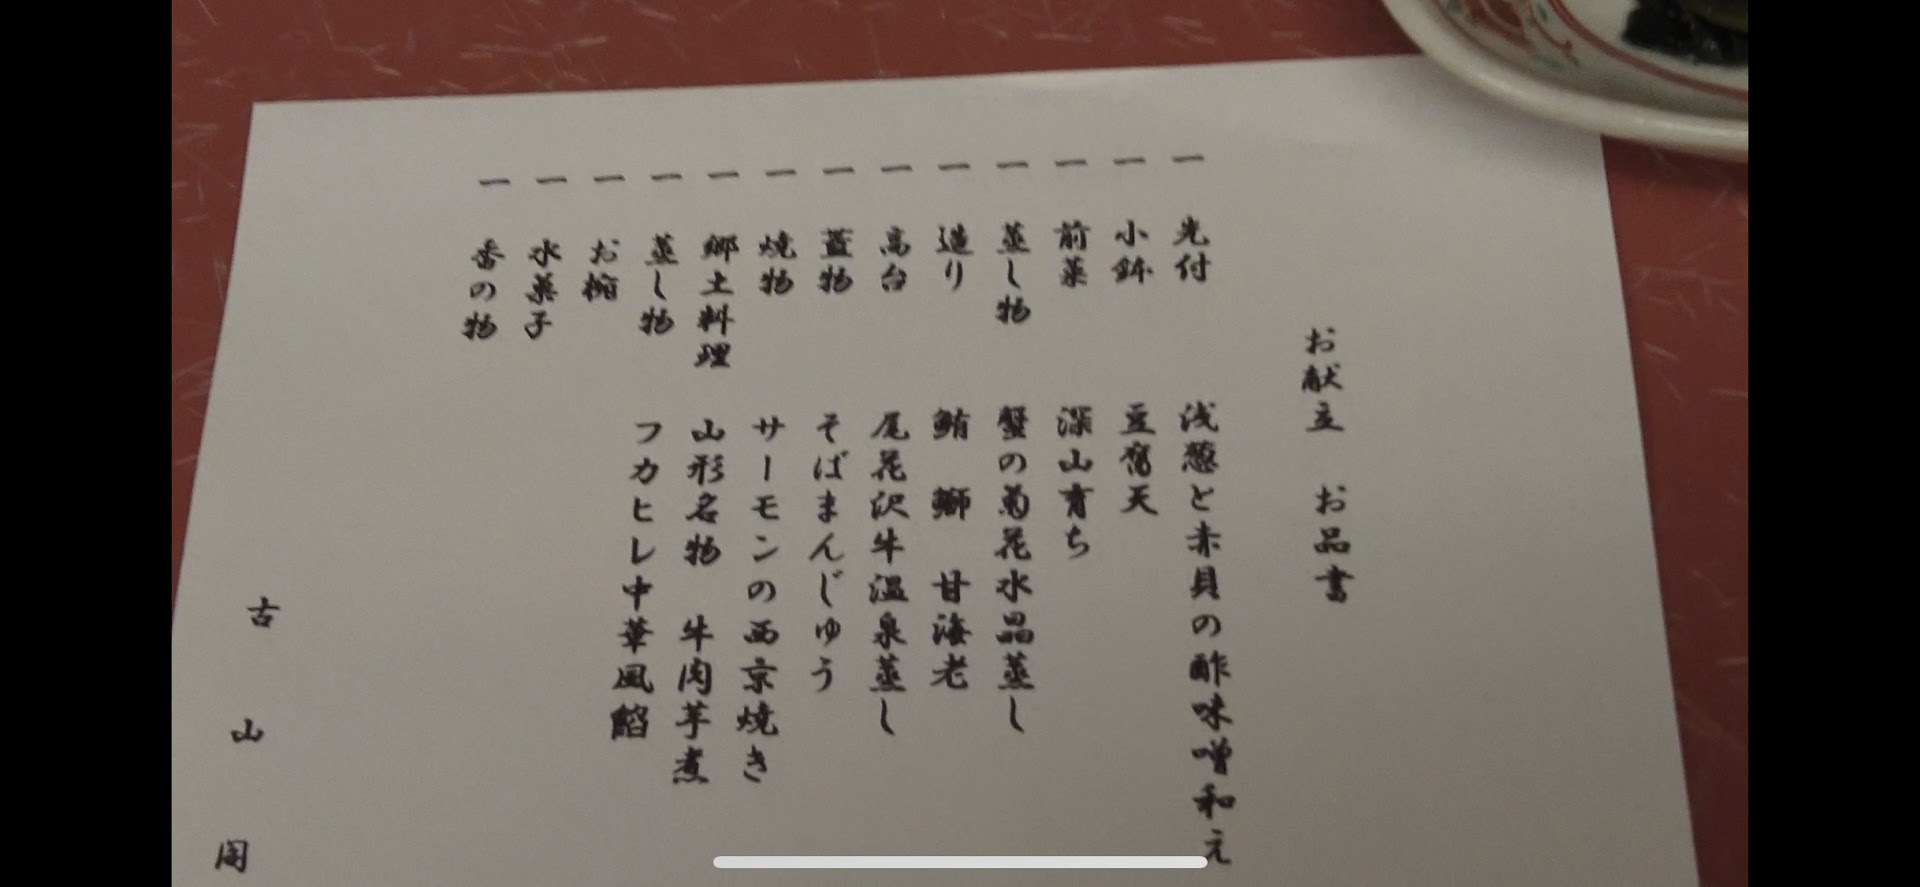 お献立 お品書
一 先付 浅葱と赤貝の酢味噌和え
一 小鉢 豆富天
一 前菜 深山育ち
一 蒸し物 蟹の菊花水晶蒸し
一 造り 鮪 鰤 甘海老
一 高台 尾花沢牛温泉蒸し
一 蓋物 そばまんじゅう
一 焼物 サーモンの西京焼き
一 郷土料理 山形名物 牛肉芋煮
一 蒸し物 フカヒレ中華風餡
一 お椀
一 水菓子
一 香の物
古山閣